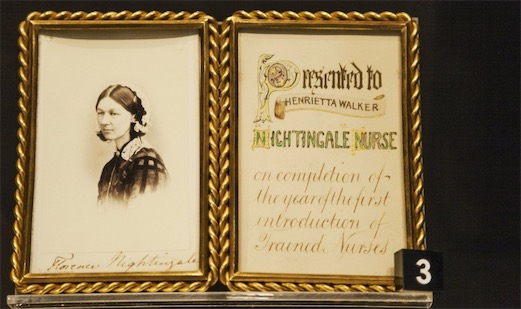 Florence Nightingale
Presented to
HENRIETTA WALKER
NIGHTINGALE NURSE
on completion of
the year of the first
introduction of
Trained Nurses
3